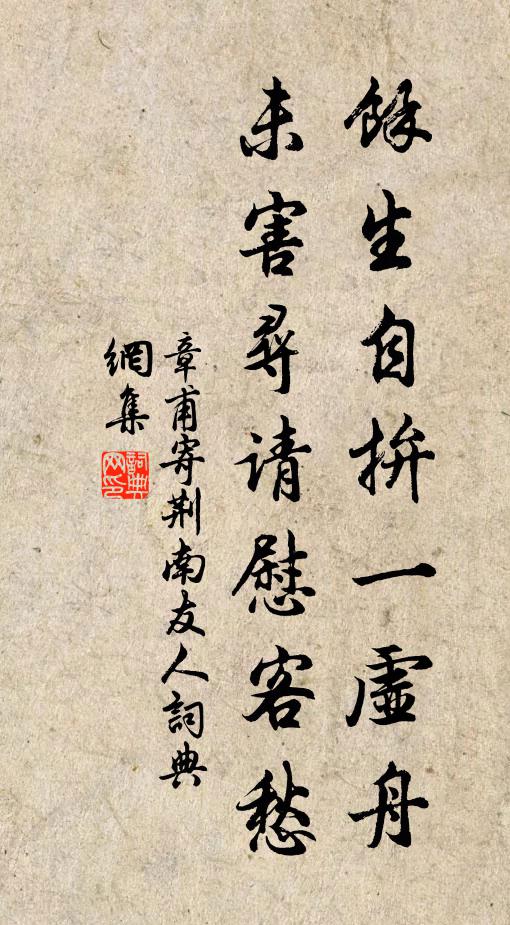 餘生自拚一虛舟
未害尋请慰客愁
章甫寄荆南友人詞典
網集
詞典
网印